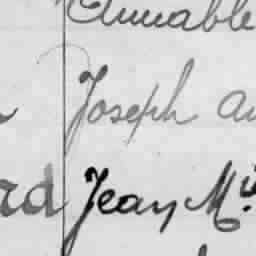 Aimable
Joseph au
rd Jean M